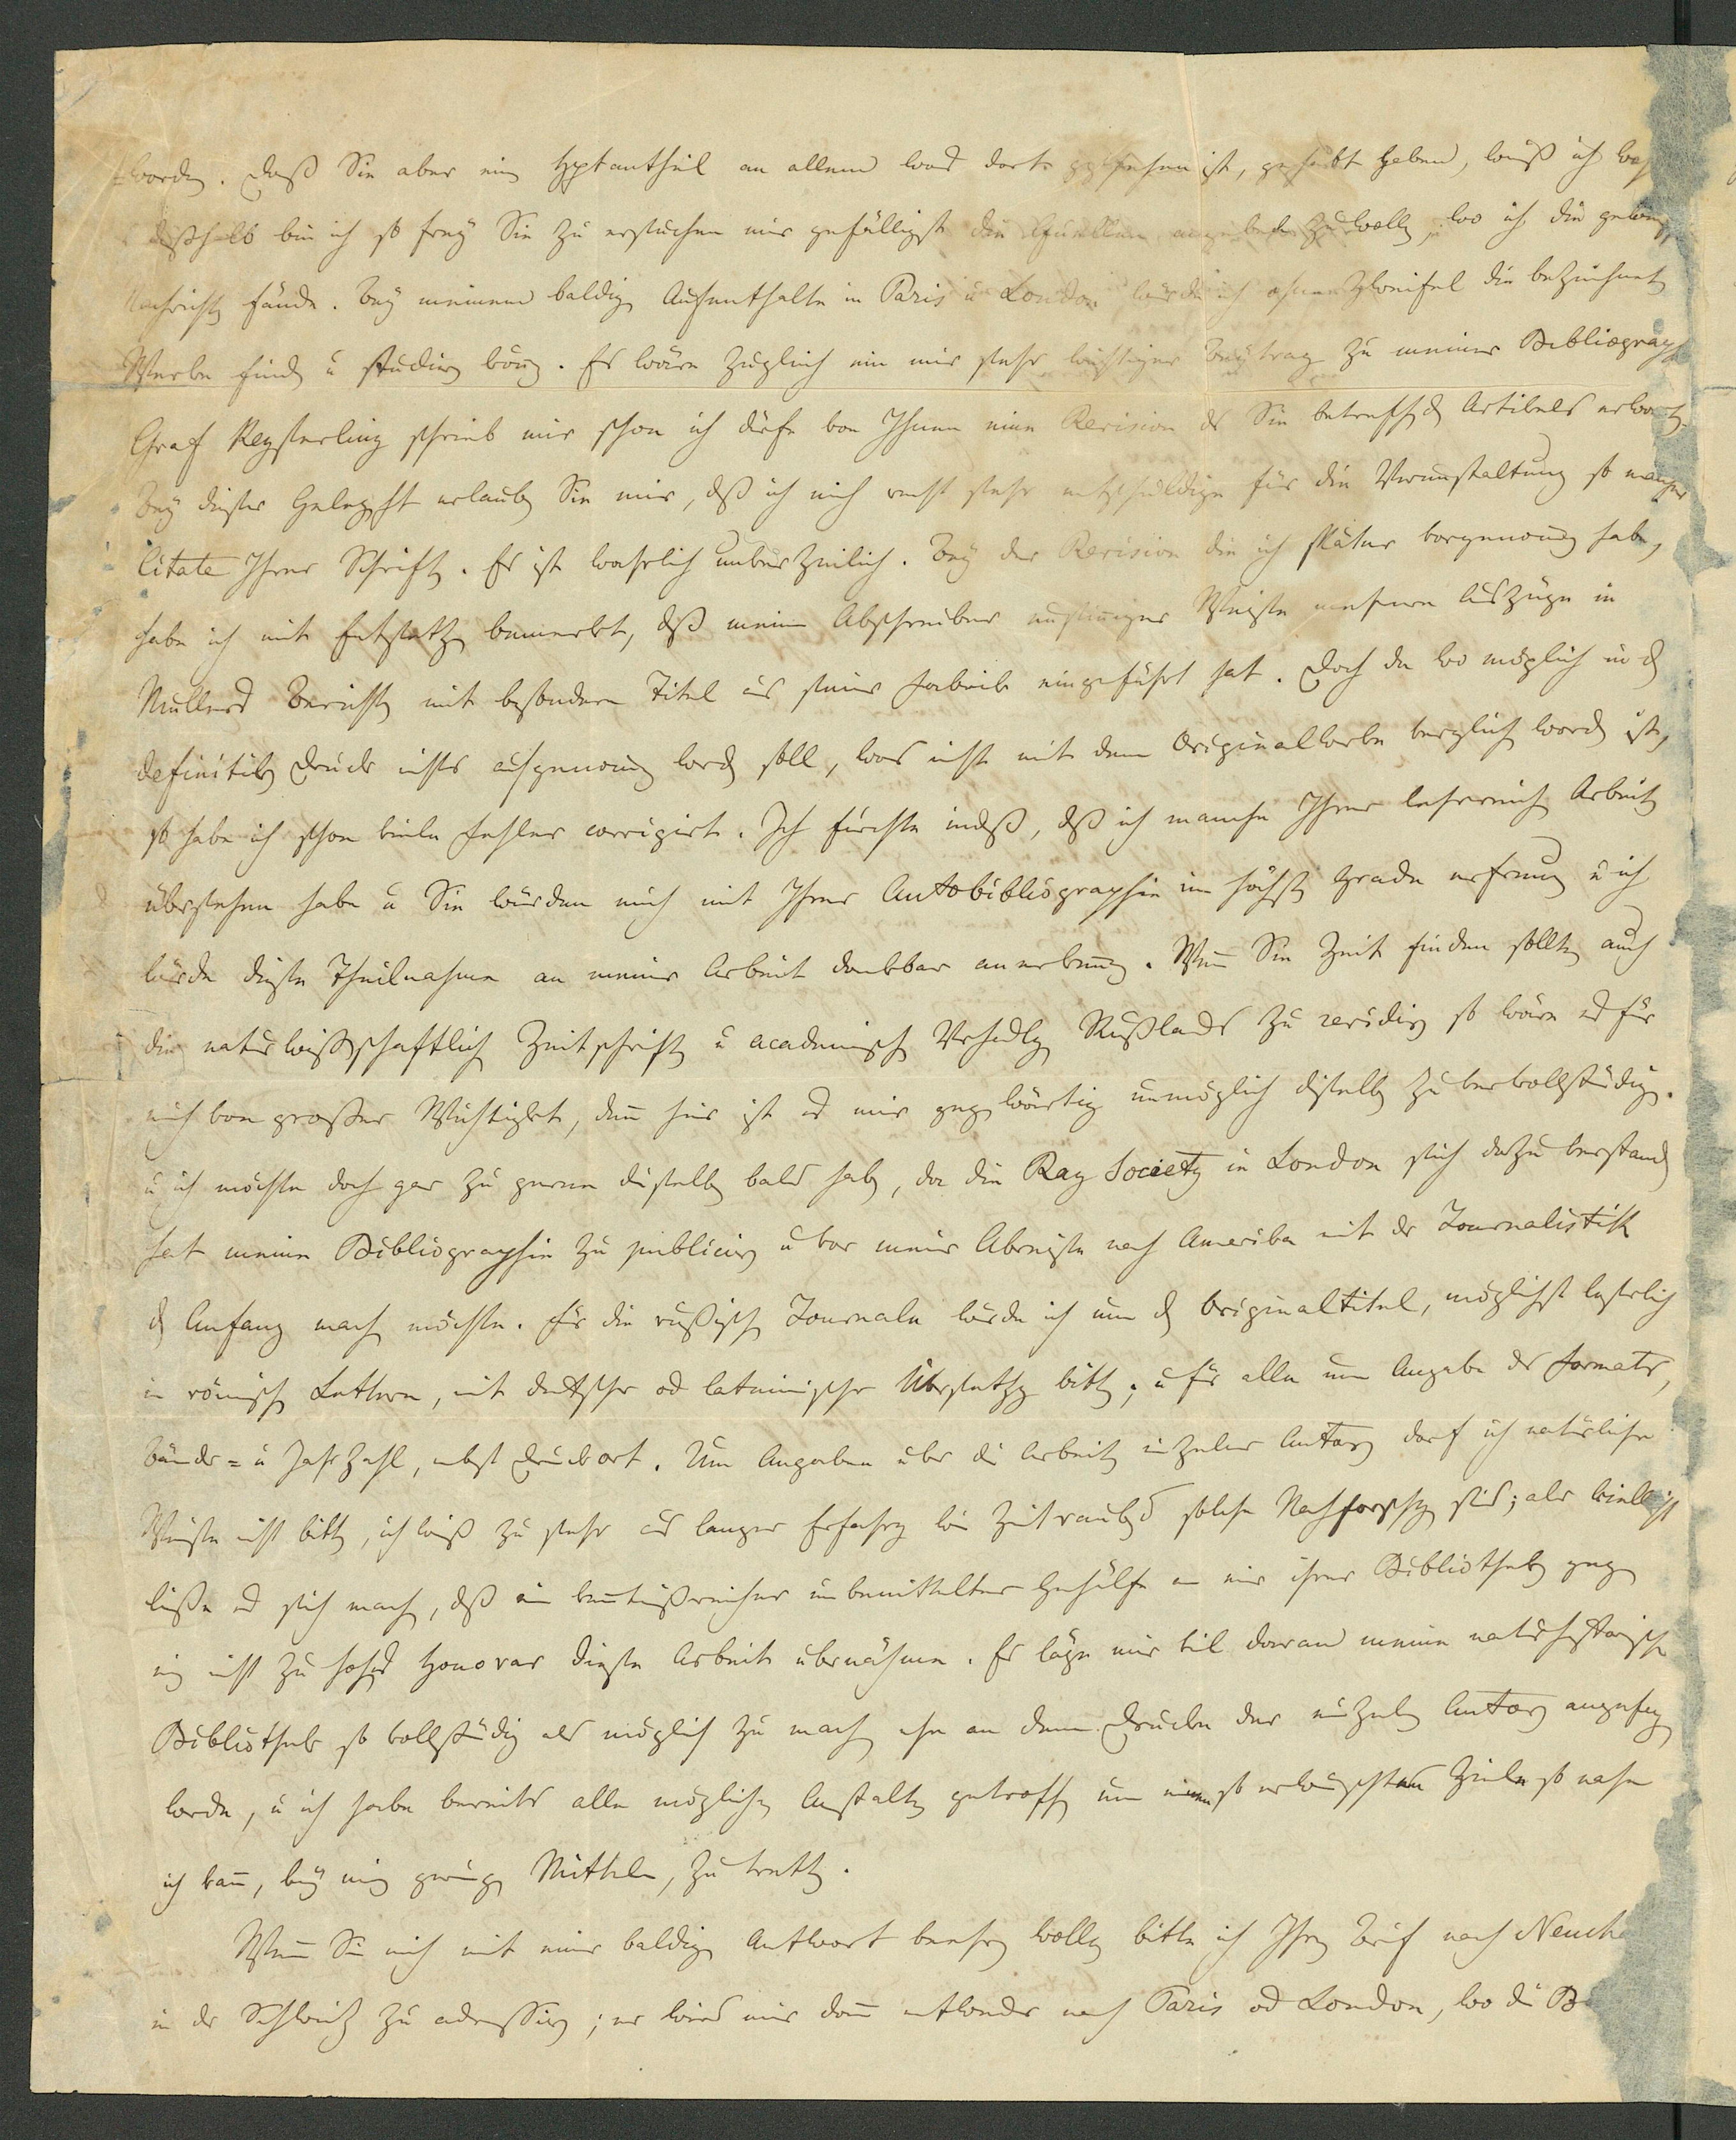 worden. Daß Sie aber ein Hptantheil an allem was dort geschehen ist, gehabt haben, weiß ich
deßhalb bin ich so frey Sie zu ersuchen mir gefälligst die Quellen angeben zu wollen, wo ich die
Nachrichten fände. Bey meinem baldigen Aufenthalte in Paris u London würde ich ohne Zweifel die bezeichneten
Werke finden u studiren könen. Es wäre zugleich ein mir sehr wichtiger Beytrag zu meiner Bibliograph
Graf Keyserling schrieb mir schon ich dürfe von Ihnen eine Revision des Sie betreffenden Artikels erwarten.
Bey dieser Gelegenht erlauben Sie mir, dß ich mich recht sehr entschuldige für die Verunstaltung so mancher
Citate Ihrer Schriften. Es ist wahrlich unverzeilich. Bey der Revision die ich später vorgenomen habe,
habe ich mit Entsetzen bemerkt, dß mein Abschreiber unsiniger Weise mehrere Auszüge in
Müllers Berichten mit besondern Titel aus seiner Fabrik eingeführt hat. Doch da wo möglich in den
definitiven Druck nichts aufgenomen werden soll, was nicht mit dem Originalwerke verglichen worden ist,
so habe ich schon viele Fehler corrigirt. Ich fürchte indeß, dß ich manche Ihrer lehrreichen Arbeiten
übersehen habe u Sie würden mich mit Ihrer Autobibliographie im höchsten Grade erfreuen u ich
würde diese Theilnahme an meiner Arbeit dankbar anerkenen. Wen Sie Zeit finden sollten auch
die naturwissenschaftlichen Zeitschriften u academischen Verhdlgen Rußlands zu revidiren so wäre es für
mich von großer Wichtigkt, den hier ist es mir gegenwärtig unmöglich dieselben zu vervollständigen.
u ich möchte doch gar zu gerne dieselben bald haben, da die Ray Society in London sich dazu verstanden
hat meine Bibliographie zu publiciren u vor meiner Abreise nach Amerika mit der Journalistik
den Anfang machen möchte. Für die rußischen Journale würde ich um den Originaltitel, möglichst leserlich
in römischen Lettern, mit deutscher od lateinischer Übersetzg bitten; u für alle um Angabe des Formats,
Bände- u Jahrzahl, nebst Druckort. Um Angaben über die Arbeiten einzelner Autoren darf ich natürlicher
Weise nicht bitten, ich weiß zu sehr aus langer Erfahrg wie zeitraubend solche Nachforschgen sind; aber vielleicht
ließe es sich machen, dß ein kentnißreicher unbemittelter Gehülfe an einer ihrer Bibliotheken gegen
ein nicht zu hohes Honorar diese Arbeit übernähme. Es läge mir viel daran meine naturhistorische
Bibliothek so vollständig als möglich zu machen ehe an dem Drucke der einzelnen Autoren angefangen
werde, u ich habe bereits alle möglichen Anstalten getroffen um einem so erwünschten Ziele so nahe
ich kan, bey meinen geringen Mitteln, zu tretten.
Wen Sie mich mit einer baldigen Antwort beehren wollen bitte ich Ihren Brief nach Neuch
in der Schweiz zu adressiren; er wird mir dan entweder nach Paris od London, wo die